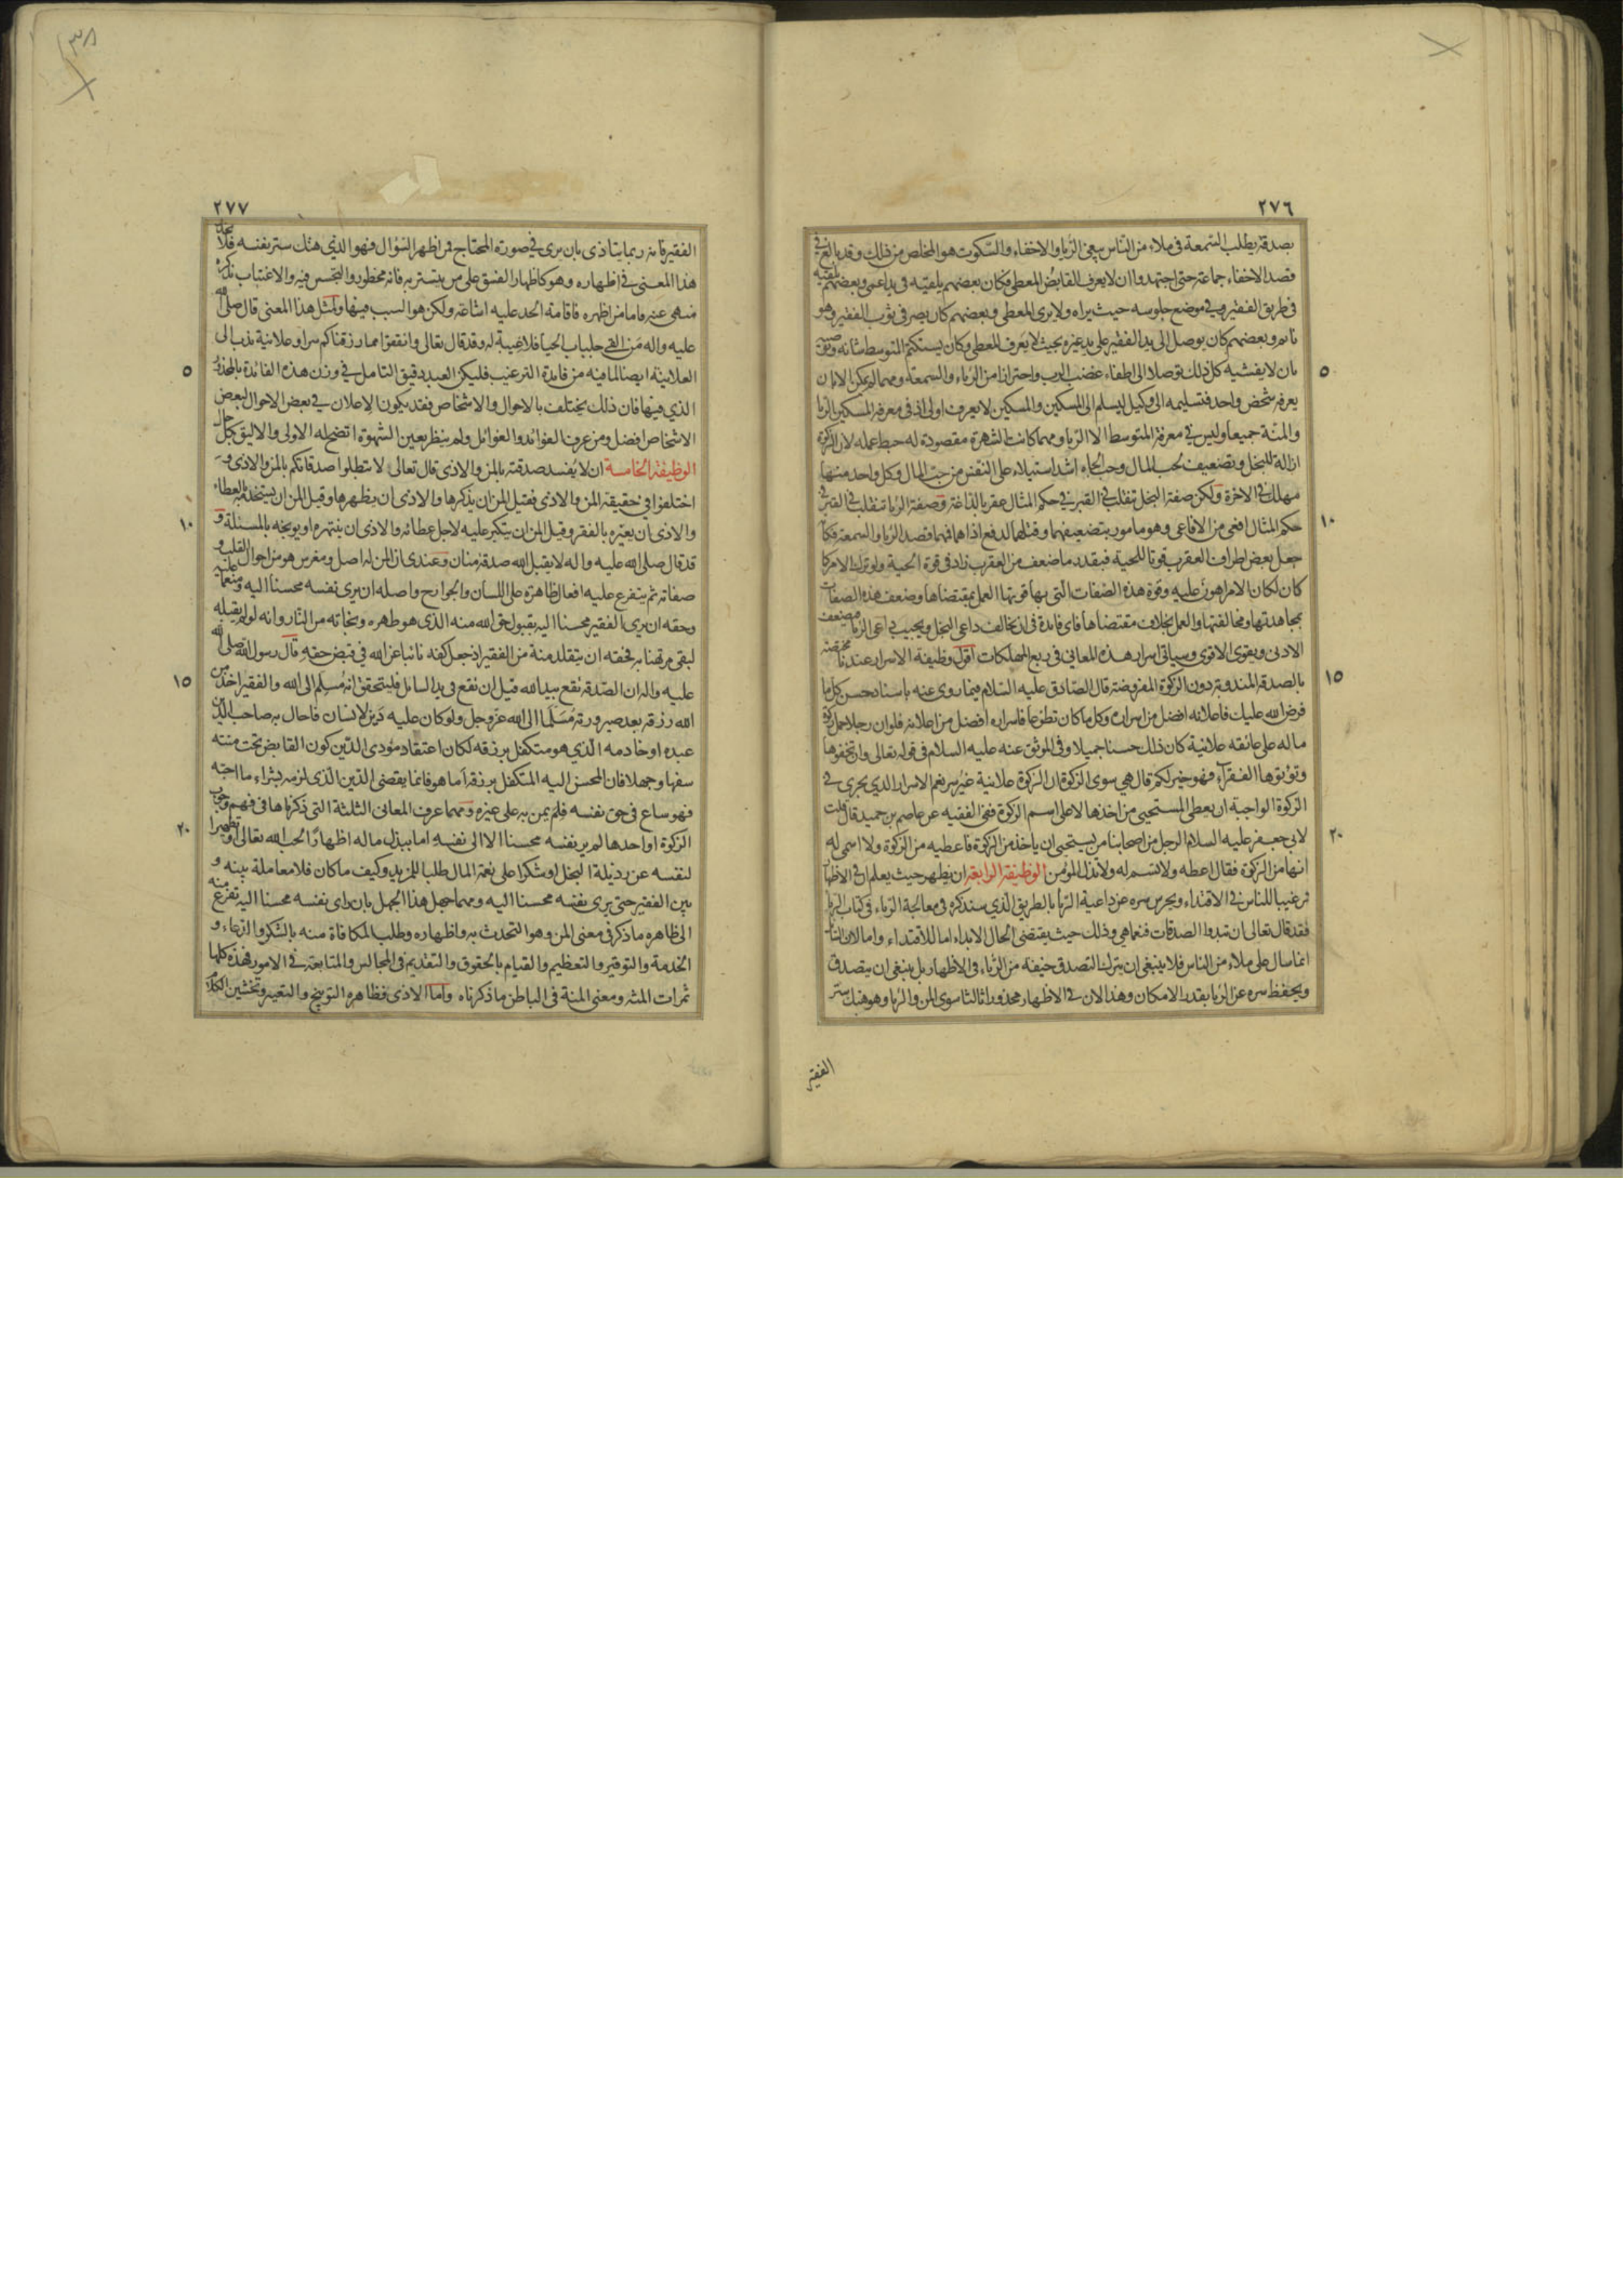 ٢٧٦
بصدقته يطلب السمعة في ملاء من الناس يبغى الرياء والاخفاء والسكوت هو المخلص من ذلك وقد بالغ في
قصد الاخفاء جماعة حتى اجتهدوا ان لا يعرف القابض المعطى فكان بعضهم يلقيه في يد اعمى وبعضهم يلقيه
في طريق الفقير وفي موضع جلوسه حيث يراه ولا يرى المعطى وبعضهم كان يصر في ثوب الفقير وهو
نائم وبعضهم كان يوصل الى يد الفقير على يد غيره بحيث لا يعرف المعطى وكان يستكتم المتوسط شانه ويوصيه
٥
بان لا يفشيه كل ذلك توصلا الى اطفاء غضب الرب واحترازا من الرياء والسمعة ومهما لم يمكن الا بان
يعرفه شخص واحد فتسليمه الى وكيل ليسلم الى المسكين والمسكين لا يعرف اولى اذ في معرفة المسكين الريا
والمنة جميعا وليس في معرفة المتوسط الا الريا ومهما كانت الشهرة مقصودة له حبط عمله لان الزكوة
ازالة للبخل وتضعيف لحب المال وحب الجاه اشد استيلاء على النفس من حب المال وكل واحد منهما
مهلك في الاخرة ولكن صفة البخل تنقلب في القبر في حكم المثال عقربا لداغة وصفة الريا تنقلب في القبر في
١٠
حكم المثال افعى من الافاعى وهو مامور بتضعيفهما وقتلهما لدفع اذاهما فمهما قصد الريا والسمعة فكانه
جعل بعض اطراف العقرب قوتا للحية فبقدر ما ضعف من العقرب زاد في قوة الحية ولو ترك الامر كما
كان لكان الامر اهون عليه وقوة هذه الصفات التي بها قوتها العمل بمقتضاها وضعف هذه الصفات
بمجاهدتها ومخالفتها والعمل بخلاف مقتضاها فاى فائدة في ان يخالف داعى البخل ويجيب داعى الريا فيضعف
الادنى ويقوى الاقوى وسياتى اسرار هذه المعاني في ربع المهلكات اقول وظيفة الاسرار عندنا مختصة
١٥
بالصدقة المندوبة دون الزكوة المفروضة قال الصادق عليه السلام فيما روى عنه باسناد حسن كل ما
فرض الله عليك فاعلانه افضل من اسراره وكل ما كان تطوعا فاسراره افضل من اعلانه فلو ان رجلا حمل زكوة
ماله على عاتقه علانية كان ذلك حسنا جميلا وفي الموثق عنه عليه السلام في قوله تعالى وان تخفوها
وتؤتوها الفقراء فهو خير لكم قال هي سوى الزكوة ان الزكوة علانية غير سر نعم الاسرار الذي يجرى في
الزكوة الواجبة ان يعطى المستحيى من اخذها لا على اسم الزكوة ففي الفقيه عن عاصم بن حميد قال قلت
٢٠
لابي جعفر عليه السلام الرجل من اصحابنا من يستحيى ان ياخذ من الزكوة فاعطيه من الزكوة ولا اسمى له
انها من الزكوة فقال اعطه ولا تسم له ولا تذل المؤمن الوظيفة الرابعة ان يظهر حيث يعلم ان في الاظهار
ترغيبا للناس في الاقتداء ويحرس سره عن داعية الريا بالطريق الذي سنذكره في معالجة الرياء في كتاب الرياء
فقد قال تعالى ان تبدوا الصدقات فنعما هي وذلك حيث يقتضى الحال الابداء اما للاقتداء واما لان السائل
انما سال على ملاء من الناس فلا ينبغي ان يترك التصدق خيفة من الرياء في الاظهار بل ينبغي ان يتصدق
ويحفظ سره عن الريا بقدر الامكان وهذا لان في الاظهار محذورا ثالثا سوى المن والريا وهو هتك ستر
الفقير
٢٧٧
الفقير فانه ربما يتاذى بان يرى في صورة المحتاج فمن اظهر السؤال فهو الذي هتك ستر نفسه فلا يحذر
هذا المعنى في اظهاره وهو كاظهار الفسق على من يتستر به فانه محظور والتجسس فيه والاغتياب بذكره
منهى عنه فاما من اظهره فاقامة الحد عليه اشاعة ولكن هو السبب فيها ولمثل هذا المعنى قال صلى الله
عليه واله من القى جلباب الحيا فلا غيبة له وقد قال تعالى وانفقوا مما رزقناكم سرا وعلانية ندب الى
٥
العلانية ايضا لما فيه من فائدة الترغيب فليكن العبد دقيق التامل في وزن هذه الفائدة بالمحذور
الذي فيها فان ذلك يختلف بالاحوال والاشخاص فقد يكون الاعلان في بعض الاحوال لبعض
الاشخاص افضل ومن عرف الفوائد والغوائل ولم ينظر بعين الشهوة اتضح له الاولى والاليق بكل حال
الوظيفة الخامسة ان لا يفسد صدقته بالمن والاذى قال تعالى لا تبطلوا صدقاتكم بالمن والاذى و
اختلفوا في حقيقة المن والاذى فقيل المن ان يذكرها والاذى ان يظهرها وقيل المن ان يستخدمه بالعطاء
١٠
والاذى ان يعيره بالفقر وقيل المن ان يتكبر عليه لاجل عطائه والاذى ان ينتهره او يوبخه بالمسئلة و
قد قال صلى الله عليه واله لا يقبل الله صدقة منان وعندى ان المن له اصل ومغرس هو من احوال القلب و
صفاته ثم يتفرع عليه افعال ظاهرة على اللسان والجوارح واصله ان يرى نفسه محسنا اليه ومنعما عليه
وحقه ان يرى الفقير محسنا اليه بقبول حق الله منه الذي هو طهره ونجاته من النار وانه لو لم يقبله
لبقى مرتهنا به فحقه ان يتقلد منة من الفقير اذ جعل كفه نائبا عن الله في قبض حقه قال رسول الله صلى الله
١٥
عليه واله ان الصدقة تقع بيد الله قبل ان تقع في يد السائل فليتحقق انه مسلم الى الله والفقير اخذ من
الله رزقه بعد صيرورته مسلما الى الله عز وجل ولو كان عليه دين لانسان فاحال به صاحب الدين
عبده او خادمه الذي هو متكفل برزقه لكان اعتقاد مؤدى الدين كون القابض تحت منته
سفها وجهلا فان المحسن اليه المتكفل برزقه اما هو فانما يقضى الدين الذي لزمه بشراء ما احبه
فهو ساع في حق نفسه فلم يمن به على غيره ومهما عرف المعانى الثلثة التي ذكرناها في فهم وجوب
٢٠
الزكوة او احدها لم ير نفسه محسنا الا الى نفسه اما ببذل ماله اظهارا لحب الله تعالى او تطهيرا
لنفسه عن رذيلة البخل او شكرا على نعمة المال طلبا للمزيد وكيف ما كان فلا معاملة بينه و
بين الفقير حتى يرى نفسه محسنا اليه ومهما حصل هذا الجهل بان راى نفسه محسنا اليه تفرع منه
الى ظاهره ما ذكر في معنى المن وهو التحدث به واظهاره وطلب المكافاة منه بالشكر والدعاء و
الخدمة والتوقير والتعظيم والقيام بالحقوق والتقديم في المجالس والمتابعة في الامور فهذه كلها
ثمرات المنة ومعنى المنة في الباطن ما ذكرناه واما الاذى فظاهره التوبيخ والتعيير وتخشين الكلام